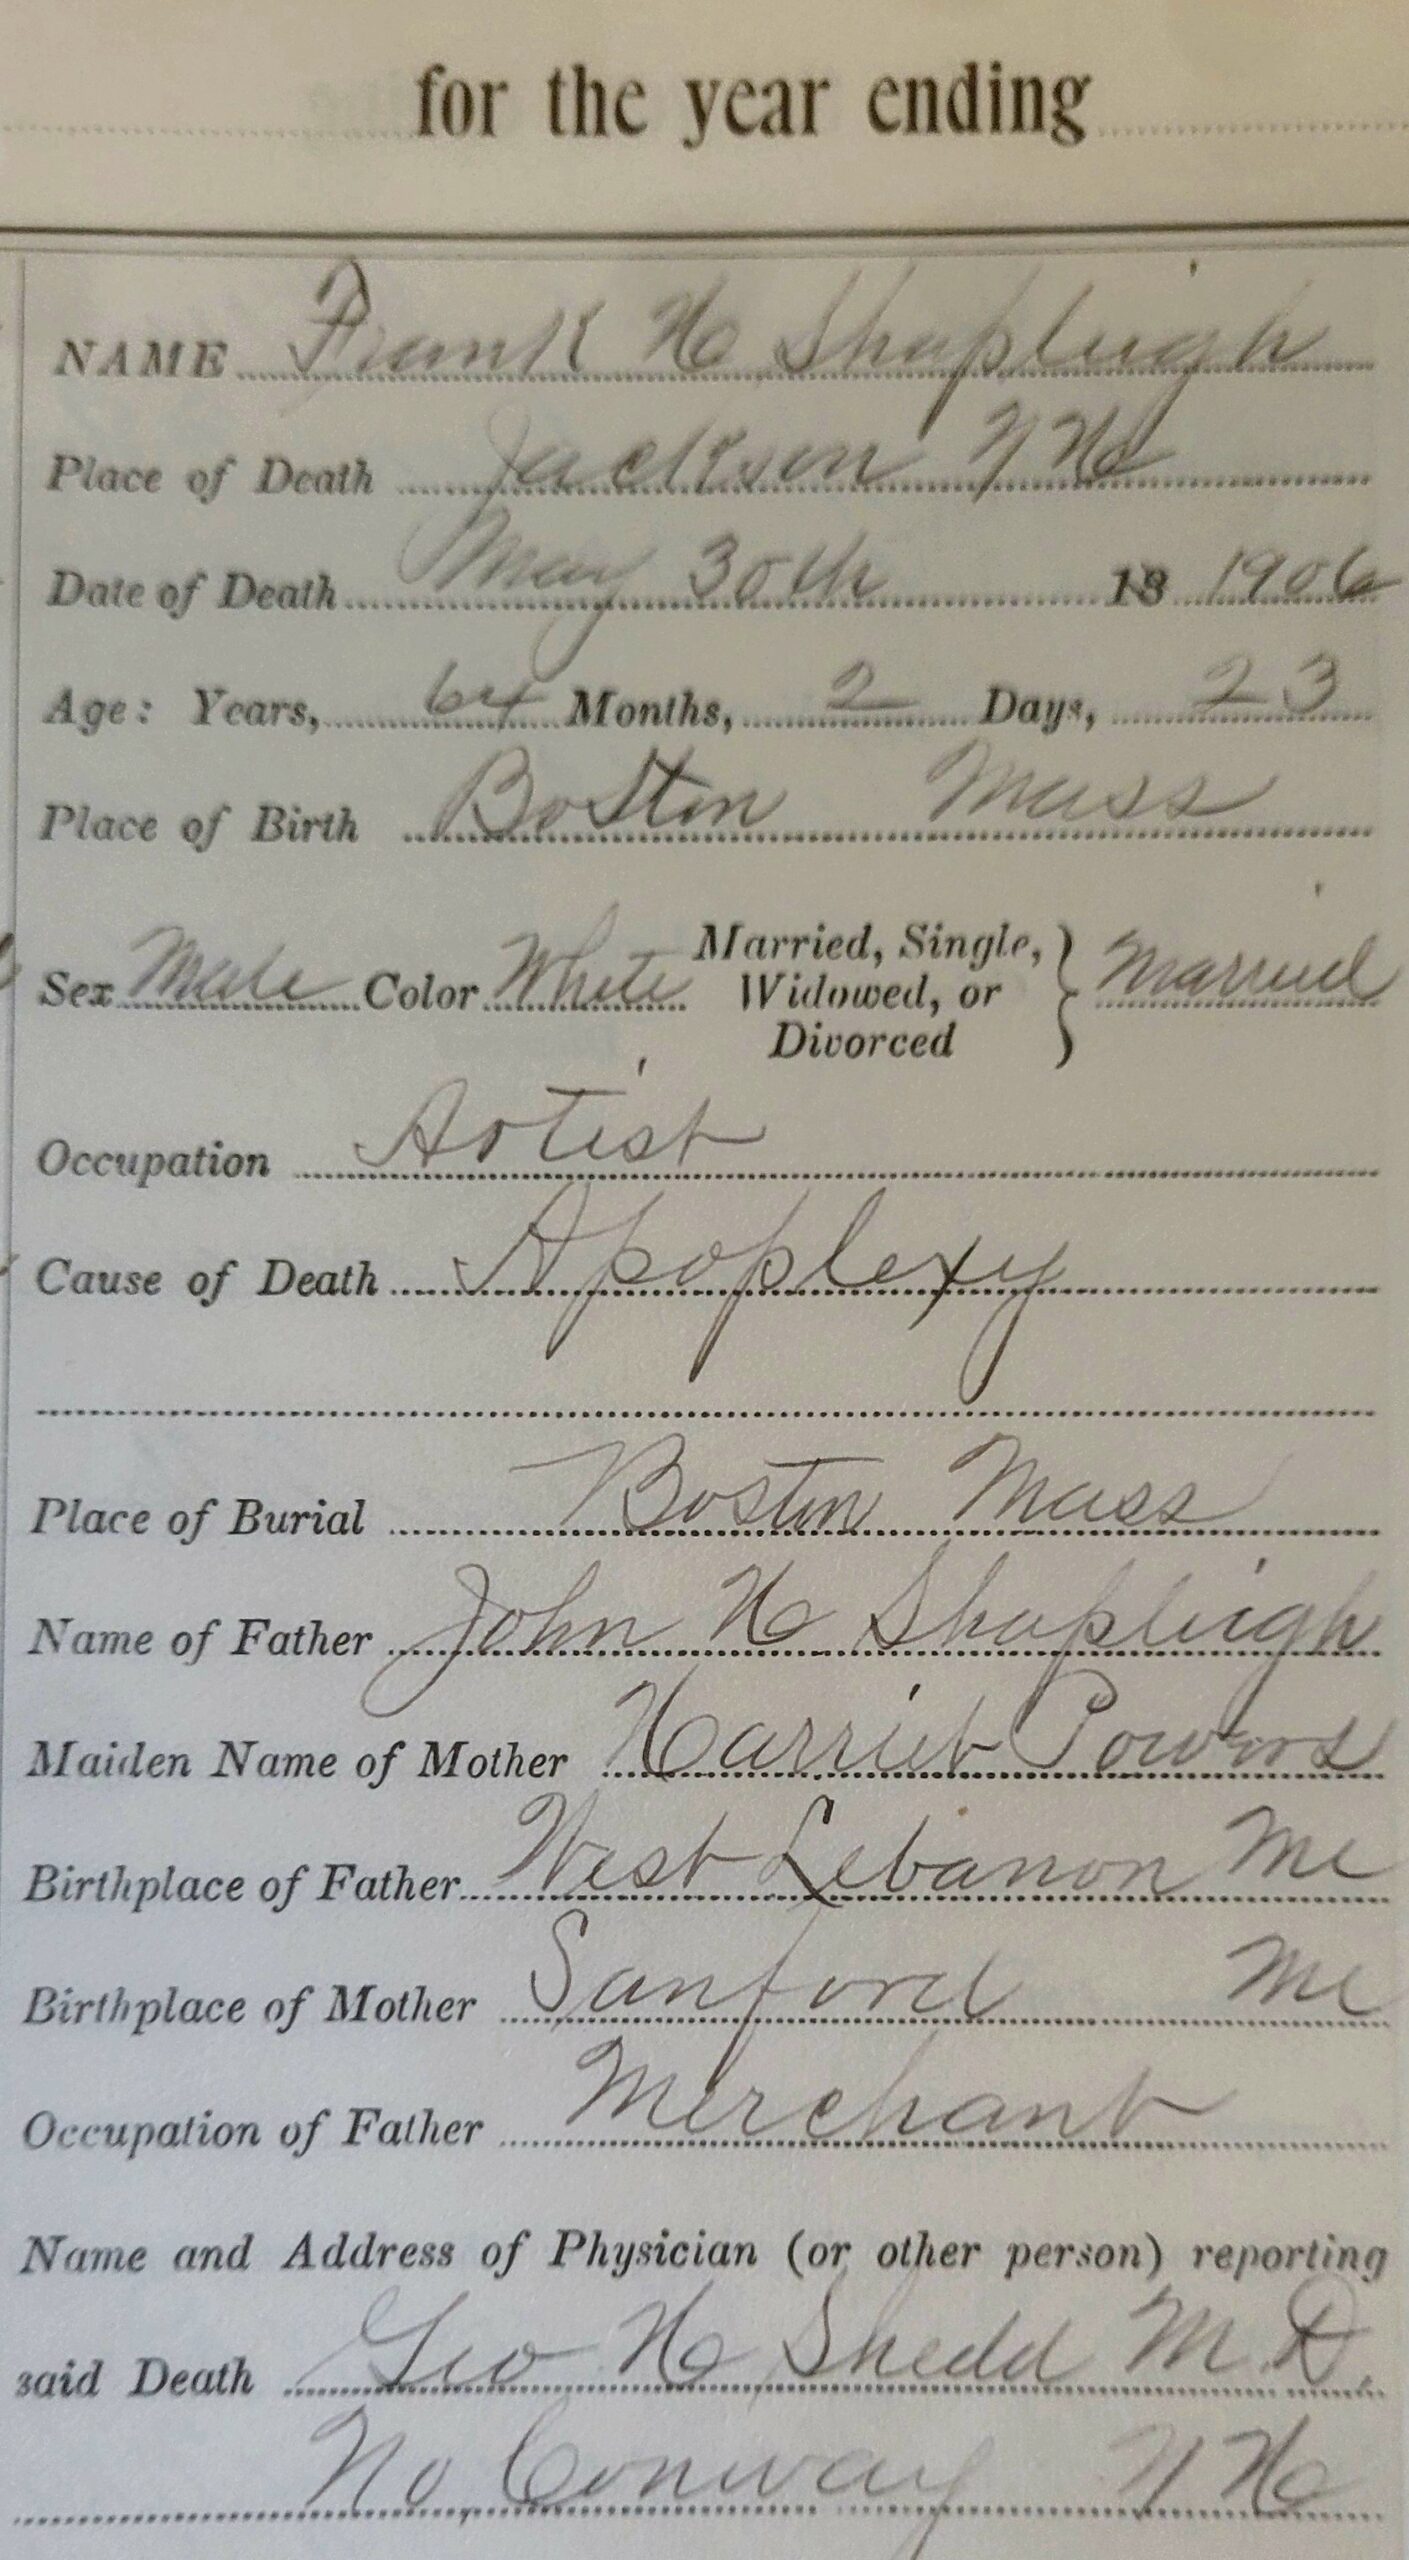 for the year ending
NAME Frank H Shapleigh
Place of Death Jackson N H
Date of Death May 30th 18 1906
Age: Years, 64 Months, 2 Days, 23
Place of Birth Boston Mass
Sex Male Color White Married, Single, Widowed, or Divorced } Married
Occupation Artist
Cause of Death Apoplexy
Place of Burial Boston Mass
Name of Father John H Shapleigh
Maiden Name of Mother Harriet Powers
Birthplace of Father West Lebanon Me
Birthplace of Mother Sanford Me
Occupation of Father Merchant
Name and Address of Physician (or other person) reporting
said Death Geo H Shedd M.D.
No. Conway N H